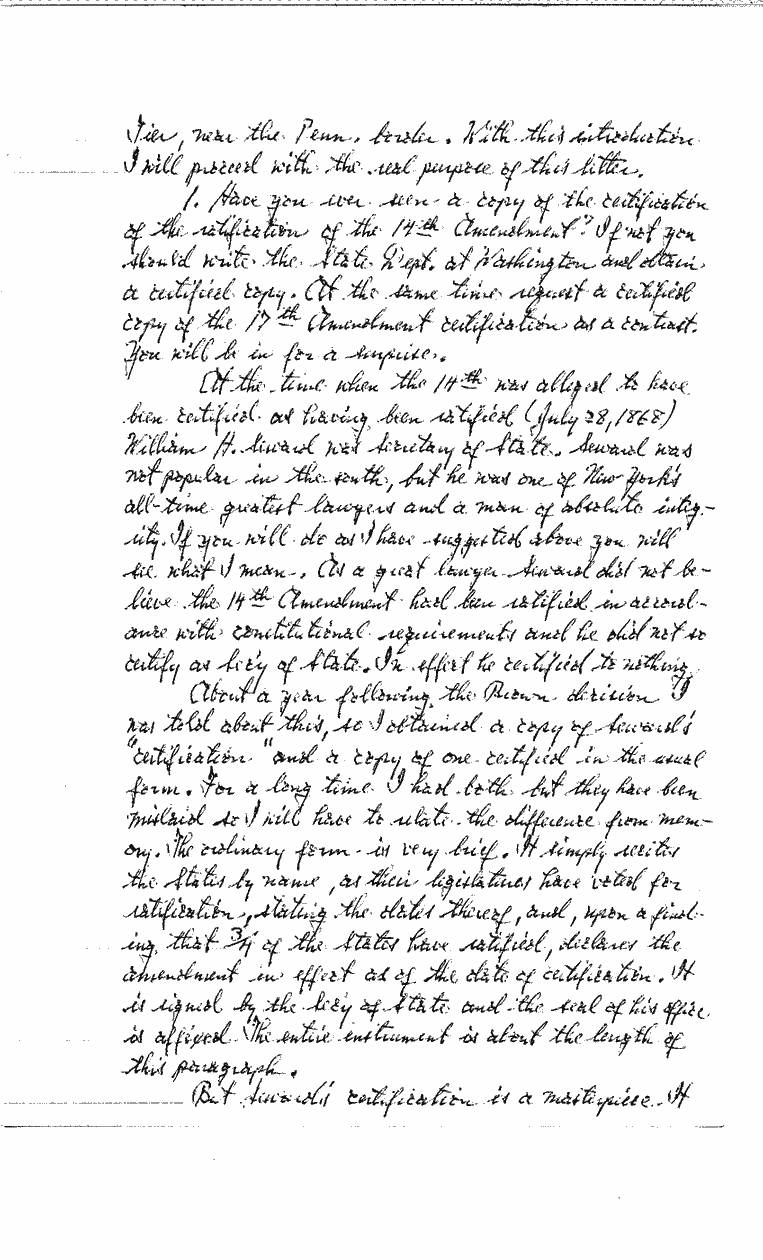 Tier, near the Penn. border. With this introduction
I will proceed with the real purpose of this letter.
1. Have you ever seen a copy of the certification
of the ratification of the 14th Amendment? If not you
should write the State Dept. at Washington and obtain
a certified copy. At the same time request a certified
copy of the 17th Amendment certification as a contrast.
You will be in for a surprise.
At the time when the 14th was alleged to have
been certified as having been ratified (July 28, 1868)
William H. Seward was Secretary of State. Seward was
not popular in the south, but he was one of New York's
all-time greatest lawyers and a man of absolute integ-
rity. If you will do as I have suggested above you will
see what I mean. As a great lawyer Seward did not be-
lieve the 14th Amendment had been ratified in accord-
ance with constitutional requirements and he did not so
certify as Sec'y of State. In effect he certified to nothing.
About a year following the Brown decision I
was told about this, so I obtained a copy of Seward's
"certification" and a copy of one certified in the usual
form. For a long time I had both but they have been
mislaid so I will have to relate the difference from mem-
ory. The ordinary form is very brief. It simply recites
the States by name, as their legislatures have voted for
ratification, stating the dates thereof, and, upon a find-
ing that 3/4 of the States have ratified, declares the
amendment in effect as of the date of certification. It
is signed by the Sec'y of State and the seal of his office
is affixed. The entire instrument is about the length of
this paragraph.
But Seward's certification is a masterpiece. It